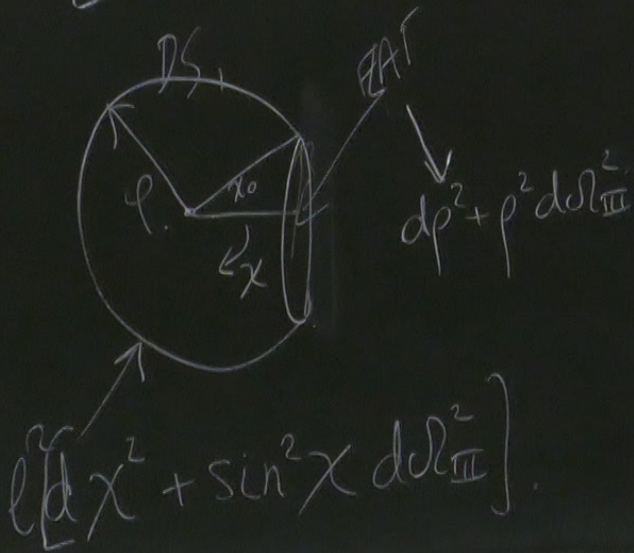 DS,
FLAT
φ.
χ₀
χ
dρ² + ρ² dΩ²_III
ℓ²[dχ² + sin²χ dΩ²_III].